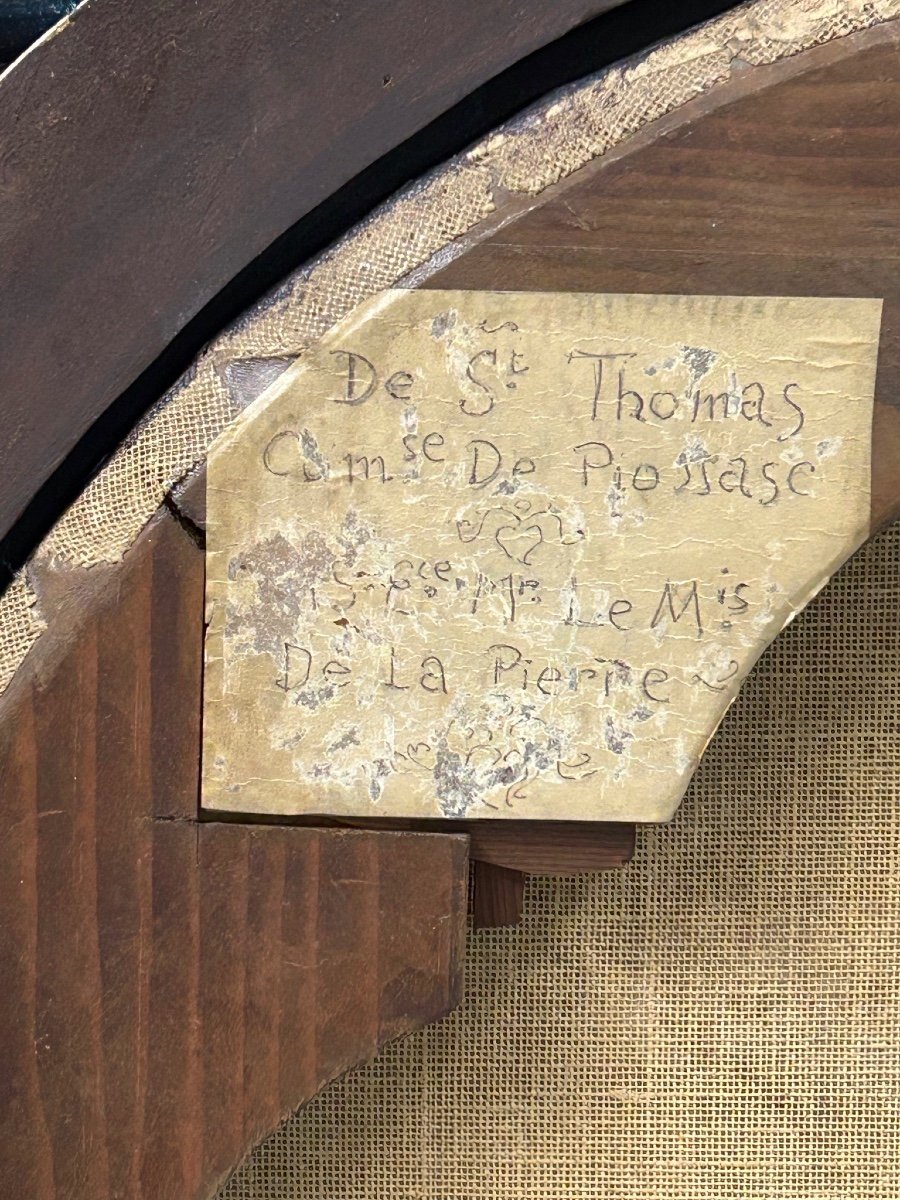 De St. Thomas
Comse De Piossasc
Mr. Le Mis
De La Pierre